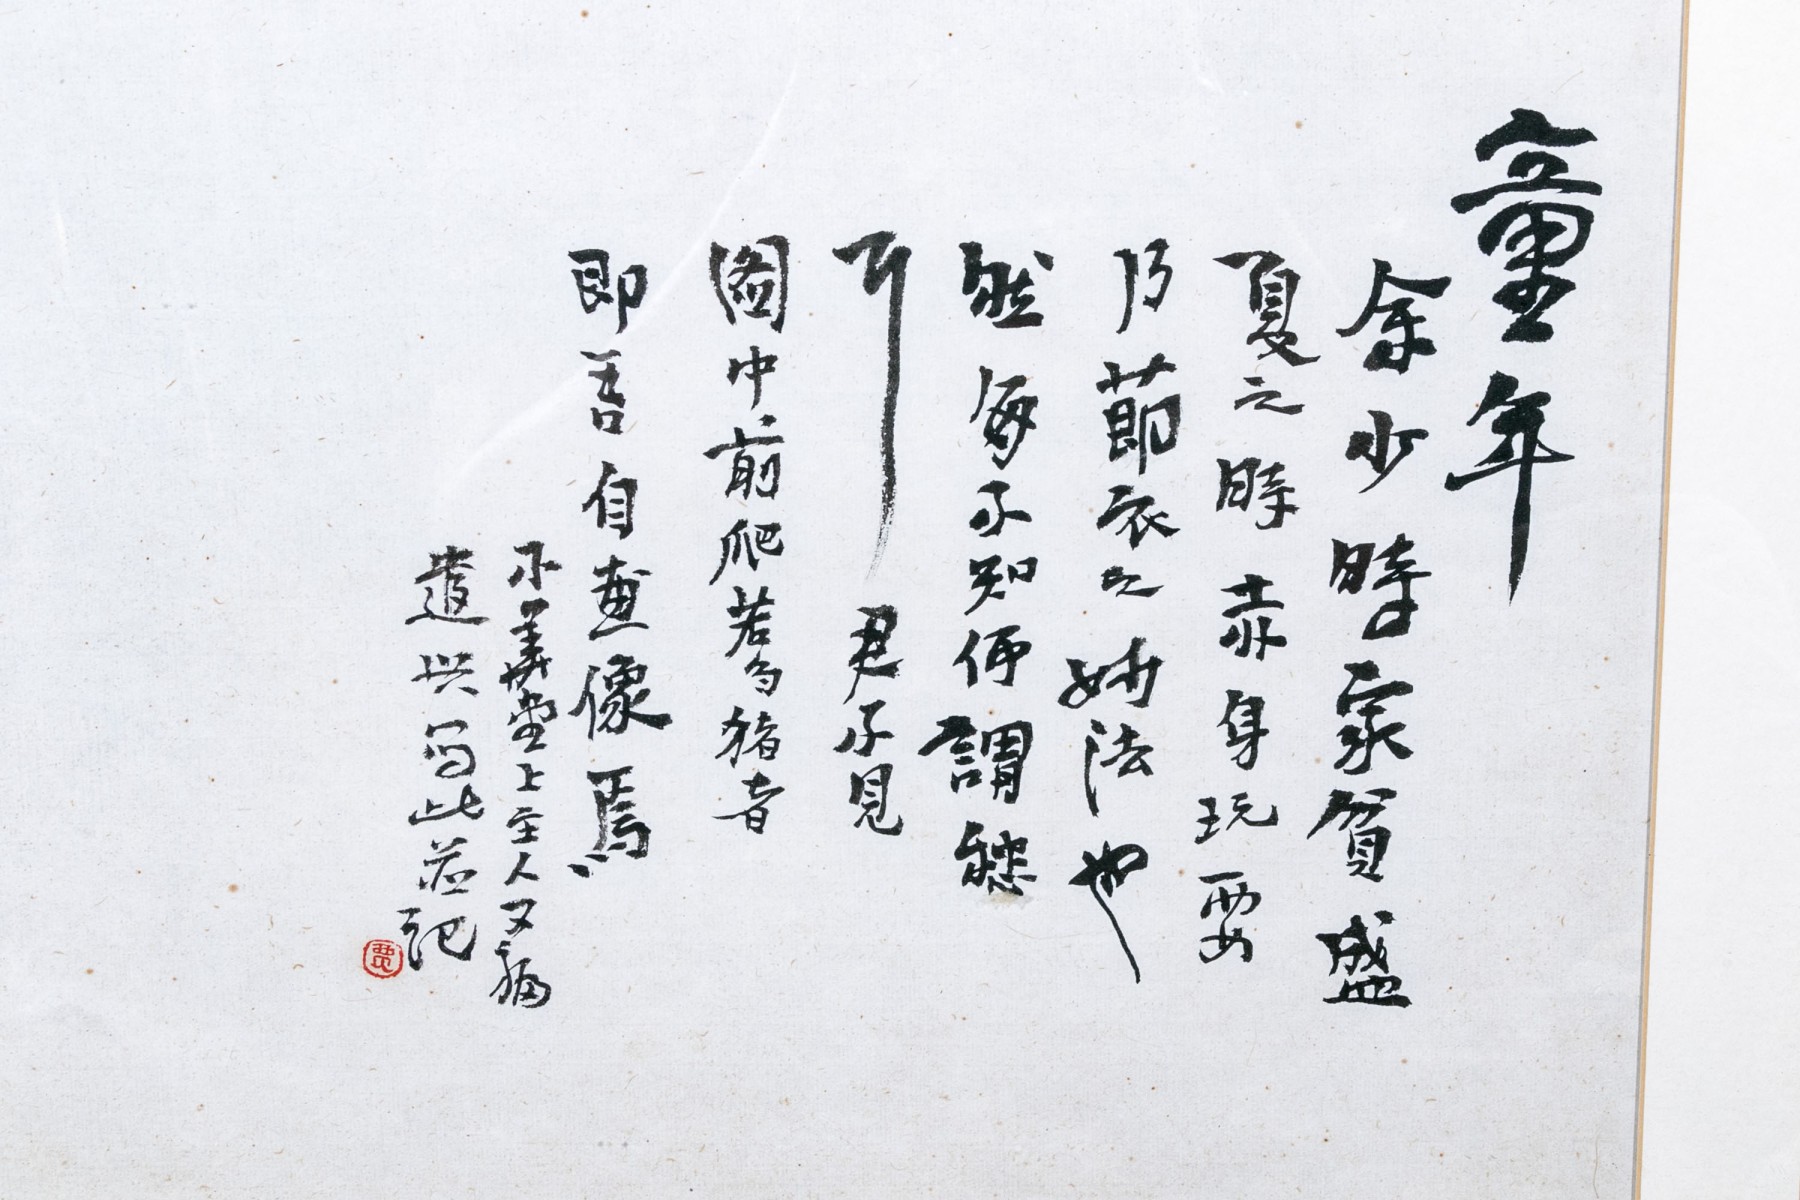 童年
余少時家貧盛
夏之時赤身玩耍
乃節衣之妙法也
然每不知何謂愁
耳 君不見
圖中前爬若為猪者
即吾自畫像焉
不堂上主人又
遣興寫此並記